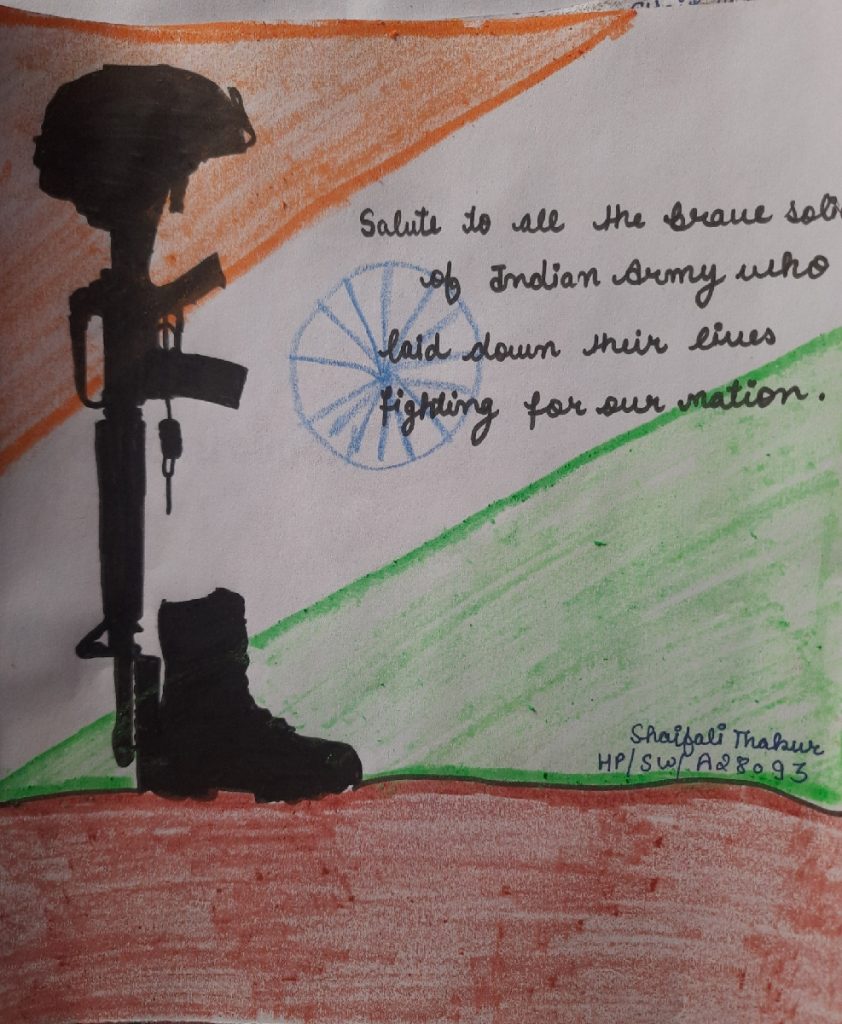 Salute to all the brave
of Indian Army who
laid down their lives
fighting for our nation.
Shaifali Thakur
HP/SW/A28093